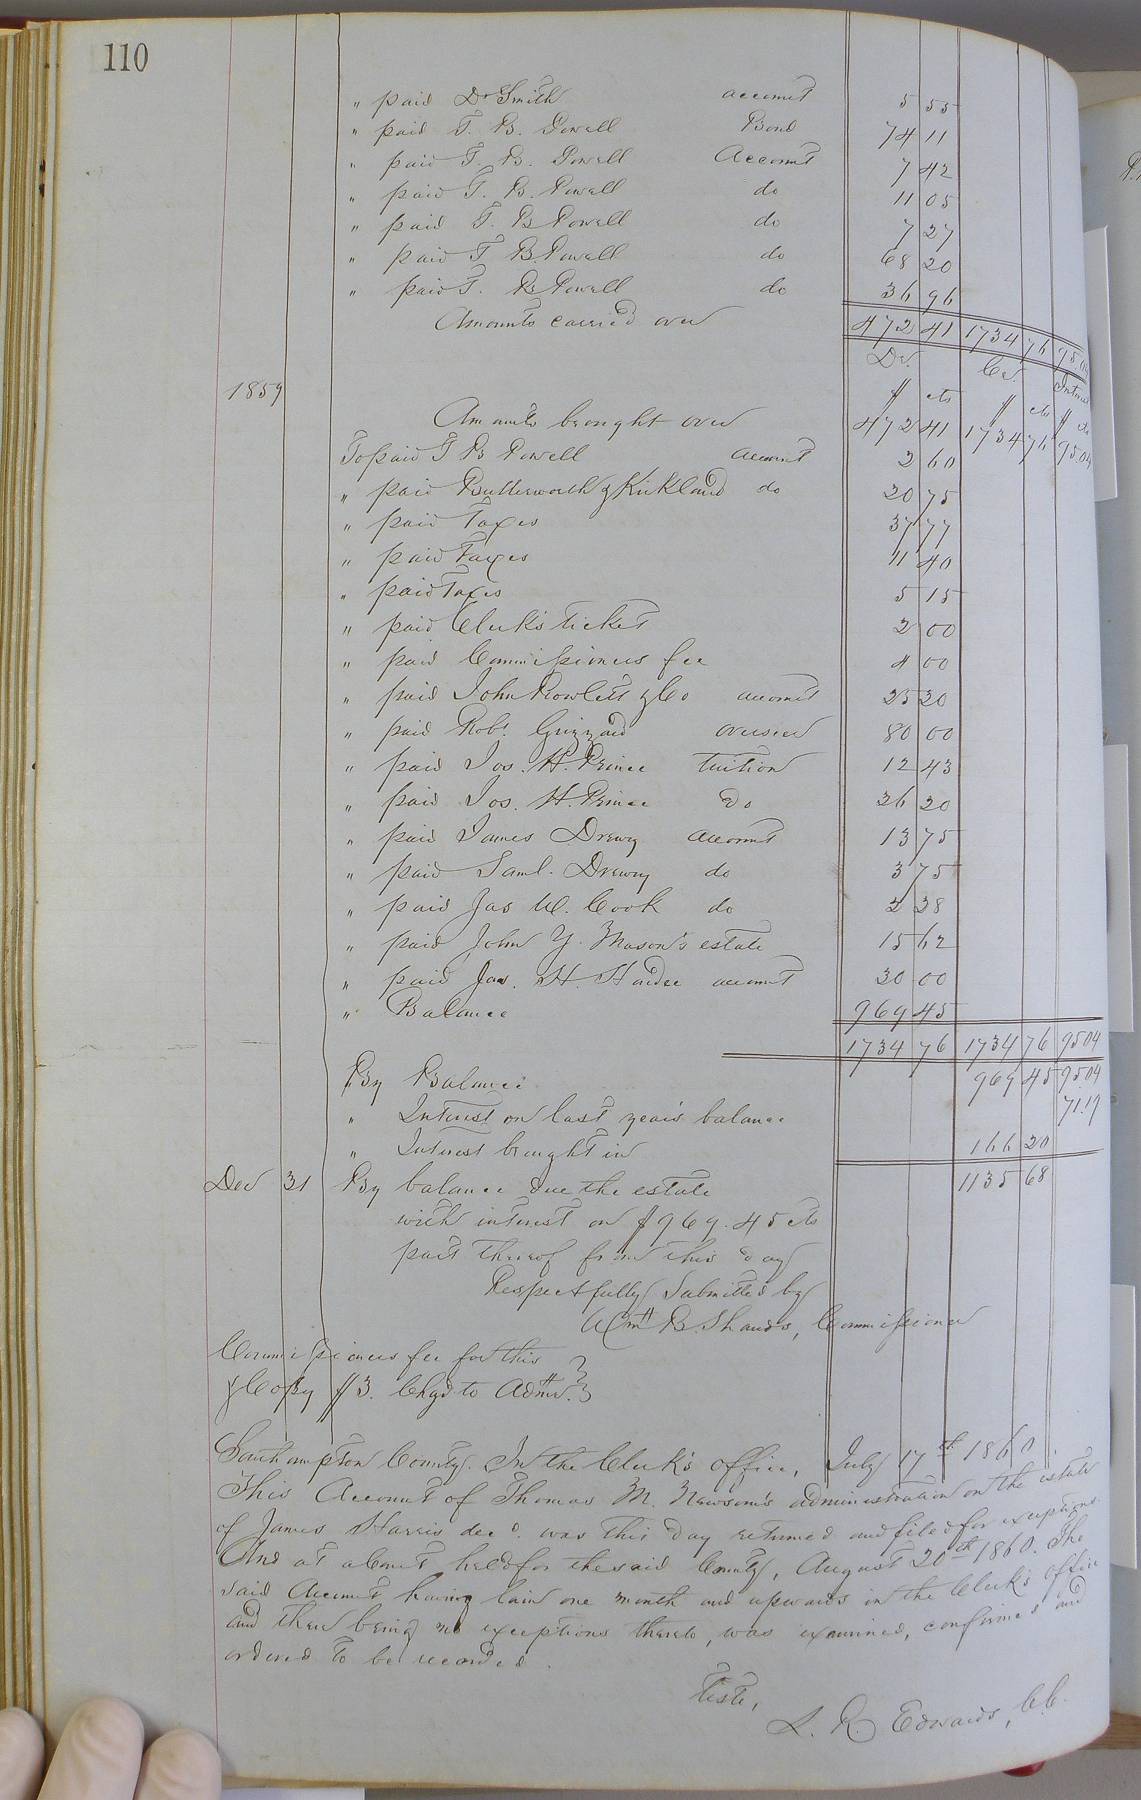 110
" paid Dr Smith account 5 55
" paid T. B. Powell Bond 74 11
" paid T. B. Powell Account 7 42
" paid T. B. Powell do 11 05
" paid T. B Powell do 7 27
" paid T B. Powell do 68 20
" paid T. B Powell do 36 96
Amounts carried over 472 41 1734 76 95.04
Dr. Cr. Interest
1859 $ cts $ cts $ cts
Amounts brought over 472 41 1734 76 95.04
To paid T B Powell account 2 60
" paid Butterworth & Kirkland do 20 75
" paid Taxes 37 77
" paid Taxes 11 40
" paid Taxes 5 15
" paid Clerk's ticket 2 00
" paid Commissioners fee 4 00
" paid John Rowlett & Co account 25 20
" paid Robt. Grizzard overseer 80 00
" paid Jos. H. Prince tuition 12 43
" paid Jos. H. Prince Do 26 20
" paid James Drewry account 13 75
" paid Saml. Drewry do 3 75
" paid Jas W. Cook do 2 28
" paid John Y. Mason's estate 15 62
" paid Jas. H. Hardee account 30 00
" Balance 969 45
1734 76 1734 76 95 04
By Balance 969 45 95 04
" Interest on last years balance 71.17
" Interest brought in 166 20
Dec 31 By balance due the estate 1135 68
with interest on $969.45 cts
part thereof from this day
Respectfully Submitted by
Wm B. Shands, Commissioner
Commissioners fee for this
& Copy $3. Chgd to Admr.
Southampton County. In the Clerk's office, July 17th 1860.
This Account of Thomas M. Newsom's administration on the estate
of James Harris decd. was this day returned and filed for exceptions.
And at a Court held for the said County, August 20th 1860. The
said Account having lain one month and upwards in the Clerk's office
and there being no exceptions thereto, was examined, confirmed and
ordered to be recorded.
Teste,
L. R. Edwards, C.C.